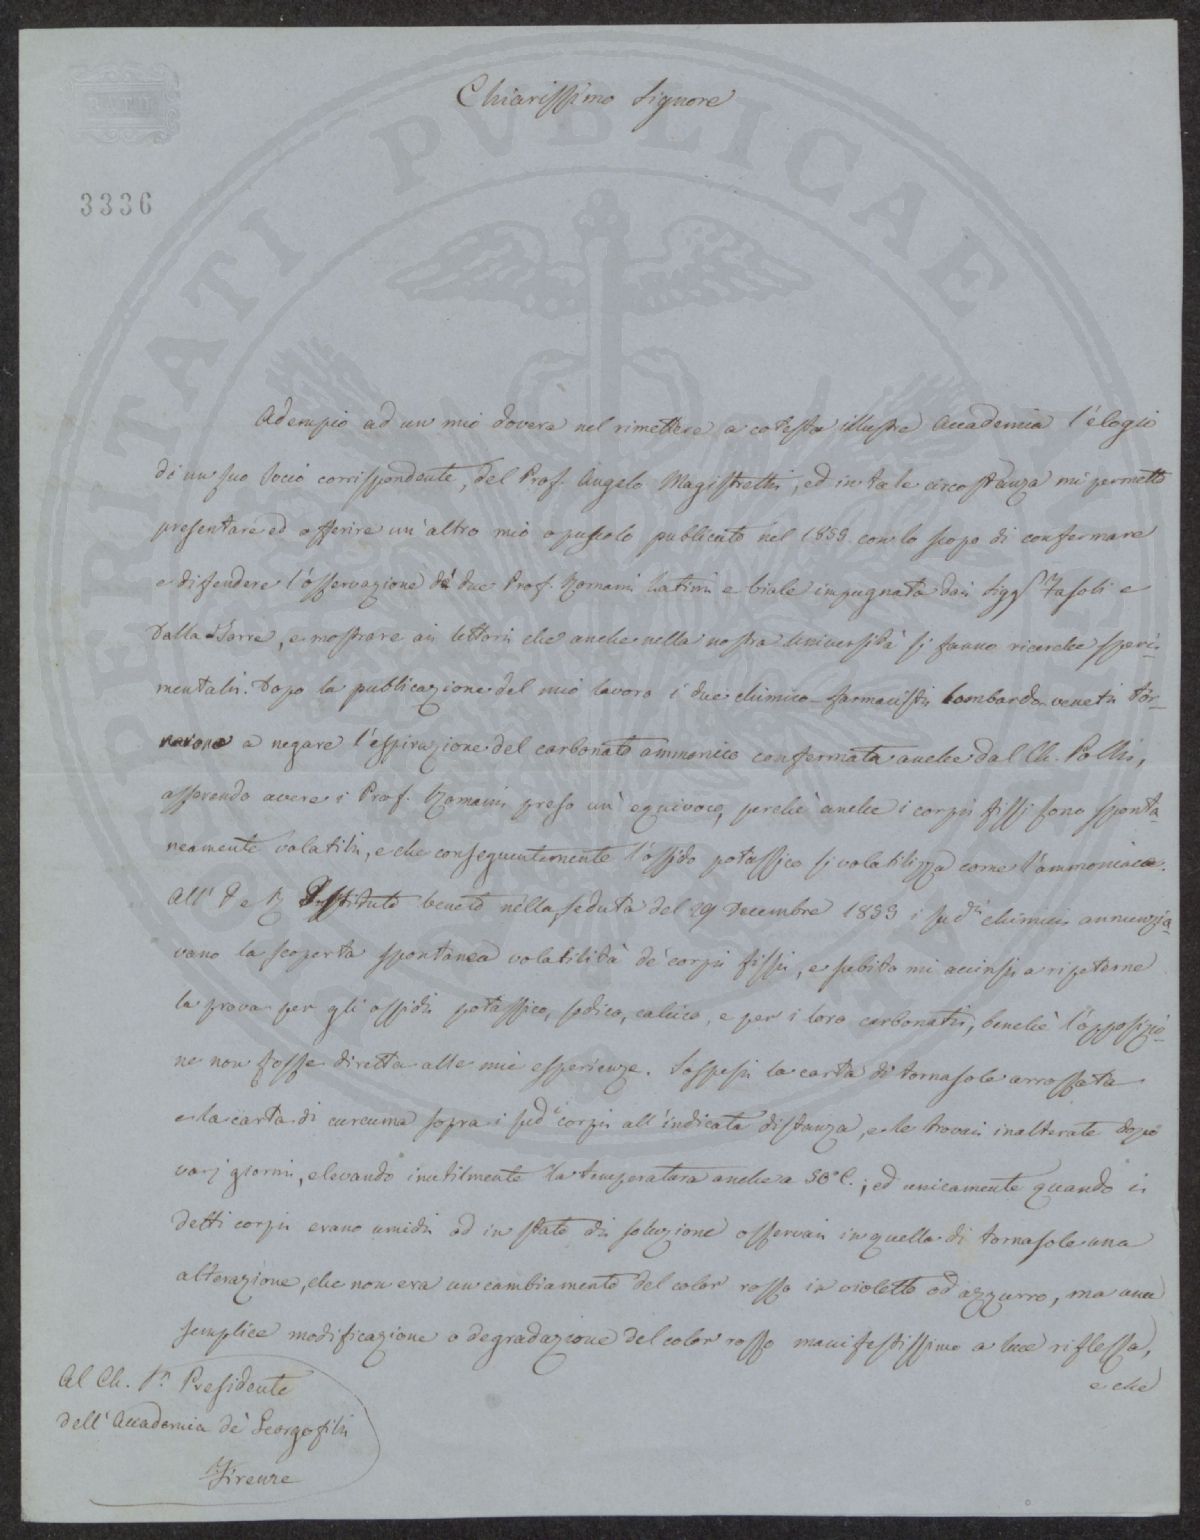 Chiarissimo Signore
BATH
3336
PROSPERITATI PVBLICAE
Adempio ad un mio dovere nel rimettere a cotesta illustre Accademia l'elogio
di un suo Socio corrispondente, del Prof. Angelo Magistretti, ed in tale circostanza mi permetto
presentare ed offerire un'altro mio opuscolo publicato nel 1853 con lo scopo di confermare
e difendere l'osservazione dei due Prof. Romani Latini e Viale impugnata dai Sigg.ri Fasoli e
Dalla Torre, e mostrare ai lettori che anche nella nostra Università si fanno ricerche speri-
mentali. Dopo la publicazione del mio lavoro i due chimico-farmacisti lombardo-veneti tor-
narono a negare l'espirazione del carbonato ammonico confermata anche dal Ch. Polli,
asserendo avere i Prof. Romani preso un'equivoco, perchè anche i corpi fissi sono sponta-
neamente volatili, e che conseguentemente l'ossido potassico si volatilizza come l'ammoniaca.
All' I e R Istituto veneto nella seduta del 29 Decembre 1853 i sud.ti chimici annunzia-
vano la scoperta spontanea volatilità de' corpi fissi, e subito mi accinsi a ripeterne
la prova per gli ossidi potassico, sodico, calcico, e per i loro carbonati, benchè l'opposizio-
ne non fosse diretta alle mie esperienze. Sospesi la carta di tornasole arrossata
e la carta di curcuma sopra i sud.i corpi all'indicata distanza, e le trovai inalterate dopo
varj giorni, elevando inutilmente la temperatura anche a 50° C.; ed unicamente quando i
detti corpi erano umidi od in stato di soluzione osservai in quella di tornasole una
alterazione, che non era un cambiamento del color rosso in violetto od azzurro, ma una
semplice modificazione o degradazione del color rosso manifestissima a luce riflessa,
e che
Al Ch. Sr. Presidente
dell'Accademia de' Georgofili
Firenze